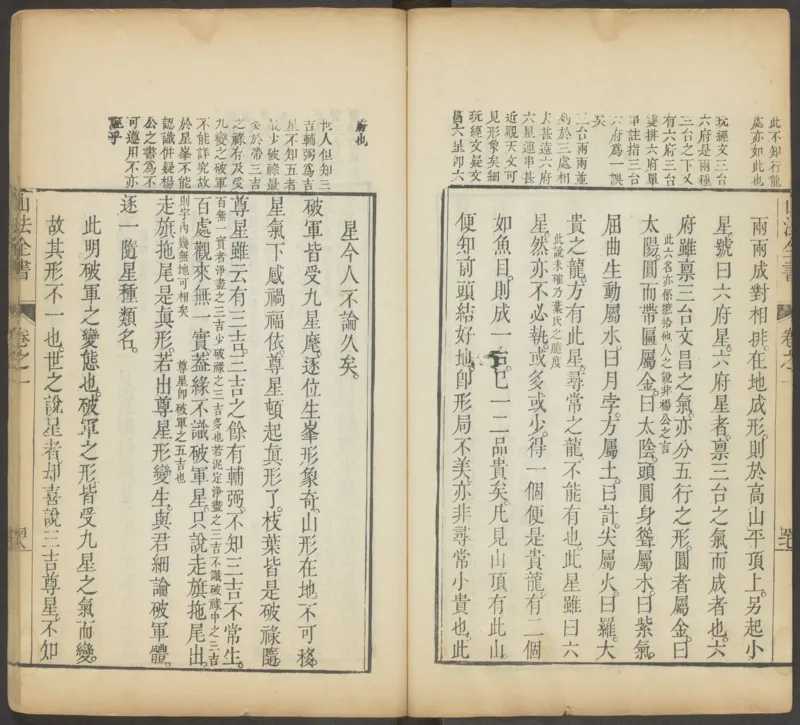 此不知行龍
處亦如此也
玩經文三台
六府是兩種
三台之下又
有六府三台
雙排六府單
串註指三台
六府為一誤
矣
三台兩兩並
列於三處相
去甚遠六府
六星進串甚
近觀天文可
見形象矣細
玩經文疑文
昌六星即六
兩兩成對相排。在地成形。則於高山平頂上。另起小
星。號曰六府星。六府星者。禀三台之氣而成者也。六
府雖禀三台文昌之氣。亦分五行之形。圓者屬金。曰
此六名亦係摭拾他人之說非楊公之言
太陽。圓而帶匾屬金。曰太陰。頭圓身聳屬木。曰紫氣。
屈曲生動屬水。曰月孛。方屬土。曰計。尖屬火。曰羅。大
貴之龍。方有此星。尋常之龍。不能有也。此星雖曰六
此說未確乃葉氏之臆度
星。然亦不必執。或多或少。得一個便是貴龍。有二個
如魚目。則成一台。已一二品貴矣。凡見山頂有此山
便知前頭結好地。即形局不美。亦非尋常小貴也。此
山法全書
卷之一
府也
他人但知三
吉輔弼為吉
星不知五者
最少破祿最
多於帶三吉
之祿存及受
九變之破軍
不能詳究故
於星峯不能
認識併疑楊
公之書為不
可遵用不亦
誣乎
星今人不論久矣。
破軍皆受九星麾。逐位生峯形象奇。山形在地不可移。
星氣下感禍福依。尊星頓起眞形了。枝葉皆是破祿隨。
尊星雖云有三吉。三吉之餘有輔弼。不知三吉不常生。
百無一實者淨盡之三吉少破祿之三吉多也若泥定淨盡之三吉不識破祿中之三吉
百處觀來無一實。葢緣不識破軍星。只說走旗拖尾出。
則宇內幾無地可相矣
尊星即破軍之五吉也
走旗拖尾是眞形。若出尊星形變生。與君細論破軍體。
逐一隨星種類名。
此明破軍之變態也。破軍之形皆受九星之氣而變。
故其形不一也。世之說星者却喜說三吉尊星。不知
山法全書
卷之一